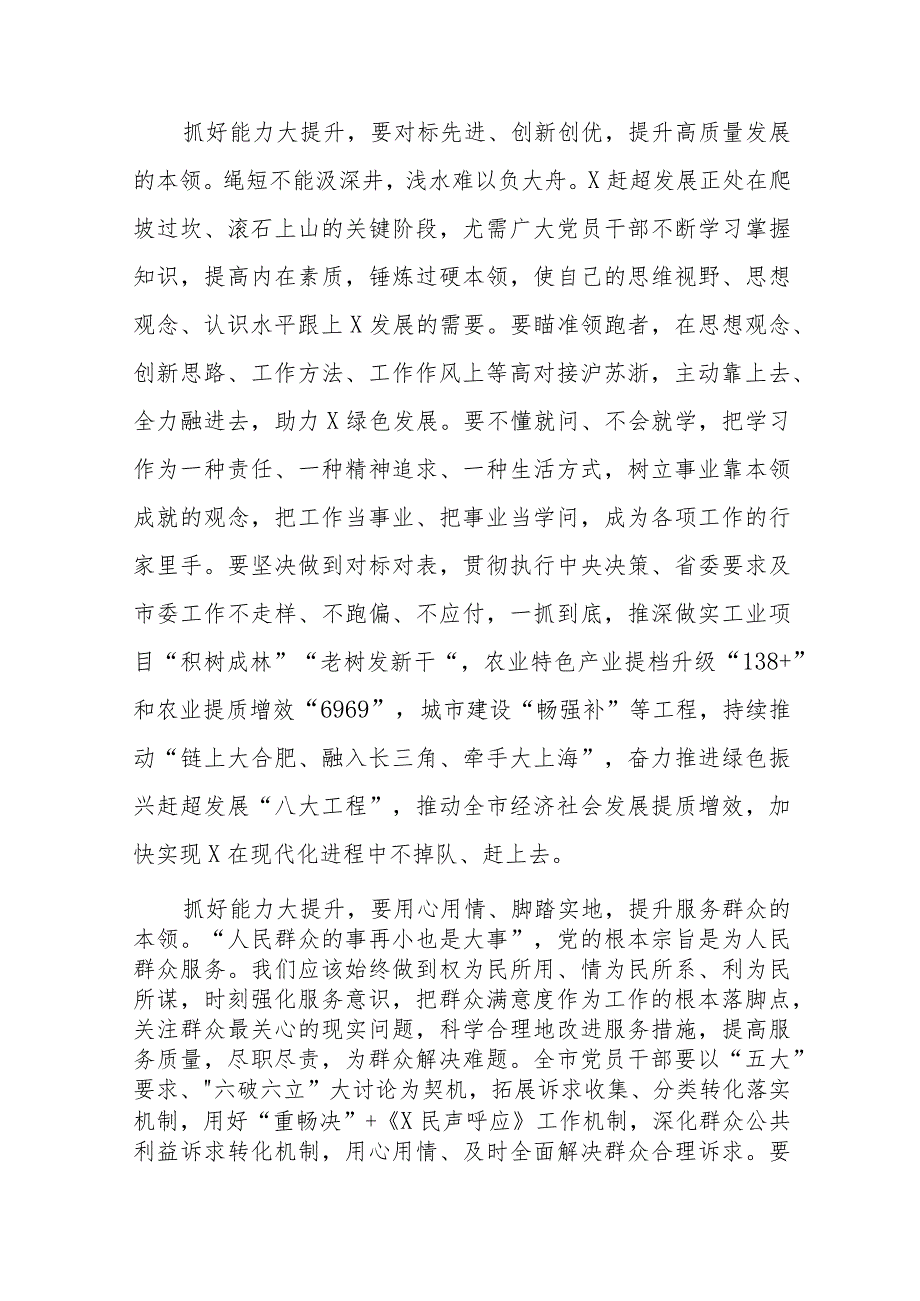 抓好能力大提升，要对标先进、创新创优，提升高质量发展
的本领。绳短不能汲深井，浅水难以负大舟。X赶超发展正处在爬
坡过坎、滚石上山的关键阶段，尤需广大党员干部不断学习掌握
知识，提高内在素质，锤炼过硬本领，使自己的思维视野、思想
观念、认识水平跟上X发展的需要。要瞄准领跑者，在思想观念、
创新思路、工作方法、工作作风上等高对接沪苏浙，主动靠上去、
全力融进去，助力X绿色发展。要不懂就问、不会就学，把学习
作为一种责任、一种精神追求、一种生活方式，树立事业靠本领
成就的观念，把工作当事业、把事业当学问，成为各项工作的行
家里手。要坚决做到对标对表，贯彻执行中央决策、省委要求及
市委工作不走样、不跑偏、不应付，一抓到底，推深做实工业项
目“积树成林”“老树发新干“，农业特色产业提档升级“138+”
和农业提质增效“6969”，城市建设“畅强补”等工程，持续推
动“链上大合肥、融入长三角、牵手大上海”，奋力推进绿色振
兴赶超发展“八大工程”，推动全市经济社会发展提质增效，加
快实现X在现代化进程中不掉队、赶上去。
抓好能力大提升，要用心用情、脚踏实地，提升服务群众的
本领。“人民群众的事再小也是大事”，党的根本宗旨是为人民
群众服务。我们应该始终做到权为民所用、情为民所系、利为民
所谋，时刻强化服务意识，把群众满意度作为工作的根本落脚点，
关注群众最关心的现实问题，科学合理地改进服务措施，提高服
务质量，尽职尽责，为群众解决难题。全市党员干部要以“五大”
要求、"六破六立”大讨论为契机，拓展诉求收集、分类转化落实
机制，用好“重畅决”+《X民声呼应》工作机制，深化群众公共
利益诉求转化机制，用心用情、及时全面解决群众合理诉求。要